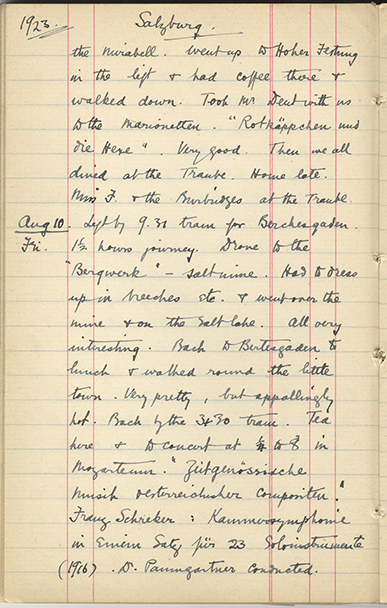 1923. Salzburg.
the Mirabell. Went up to Hohen Festung
in the lift & had coffee there &
walked down. Took Mr Dent with us
to the Marionetten. "Rotkäppchen und
die Hexe". Very good. Then we all
dined at the Traube. Home late.
Miss F. & the Burbidges at the Traube.
Aug 10. Left by 9.31 train for Berchesgaden.
Fri. 1½ hours journey. Drove to the
"Bergwerk" - salt mine. Had to dress
up in breeches etc. & went over the
mine & on the Salt lake. All very
interesting. Back to Bertesgaden to
lunch & walked round the little
town. Very pretty, but appallingly
hot. Back by the 3.30 train. Tea
here & to concert at ¼ to 8 in
Mozarteum. "Zeitgenössische
Musik oesterreichischer Compositen."
Franz Schreker: Kammersymphonie
in Einem Satz für 23 Soloinstrumente
(1916). D. Paumgartner conducted.